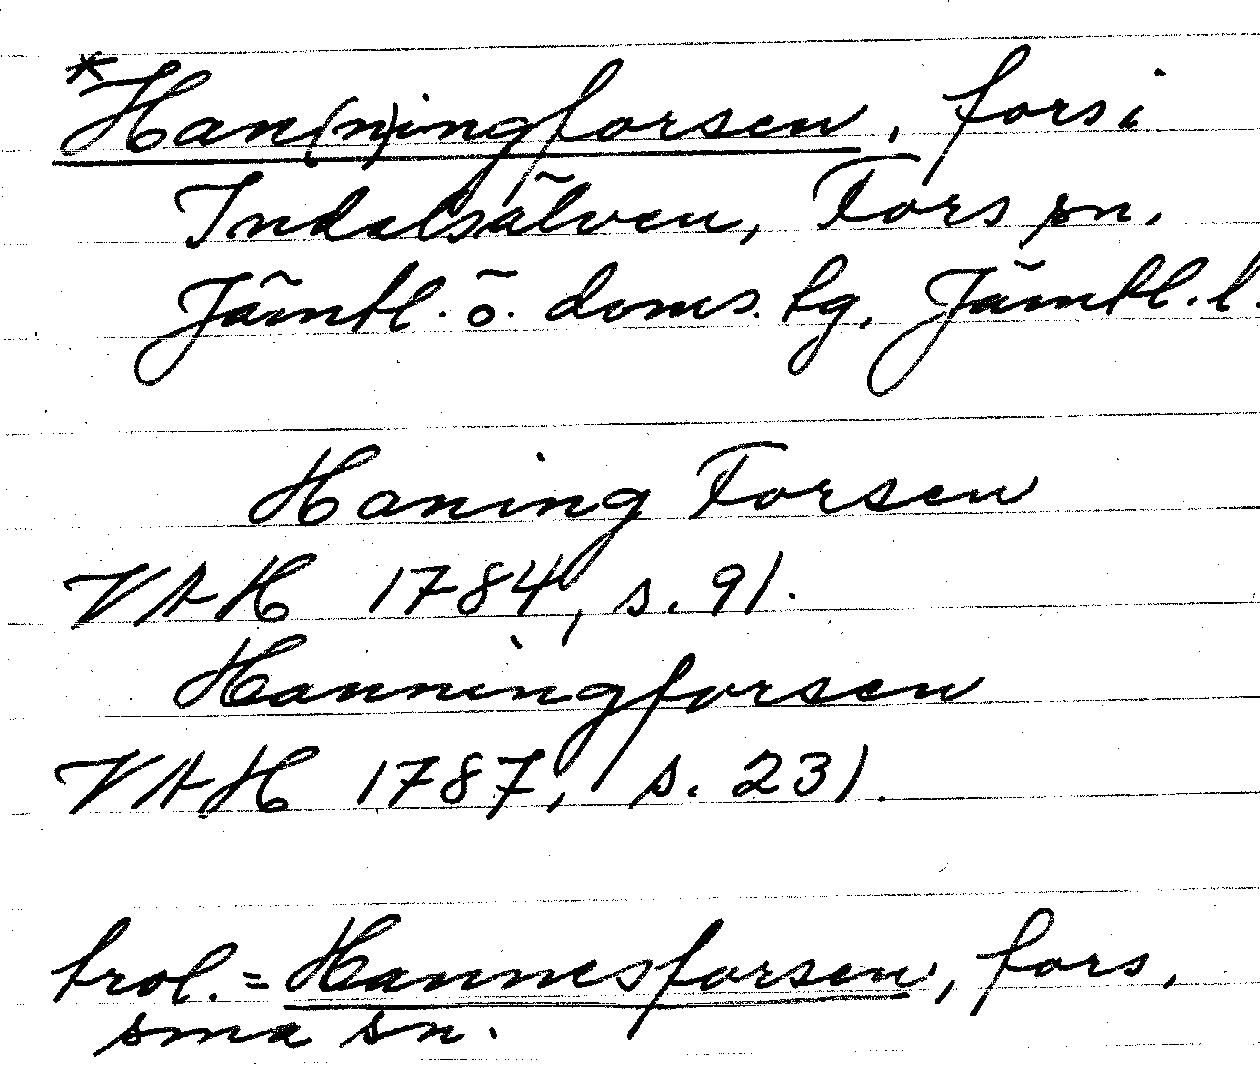 *Han(n)ingforsen, fors i
Indalsälven, Fors sn.
Jämtl. ö. doms. tg, Jämtl. l.
Haning Forsen
VAH 1784, s. 91.
Hanningforsen
VAH 1787, s. 231.
trol. = Hannesforsen, fors,
sma sn.